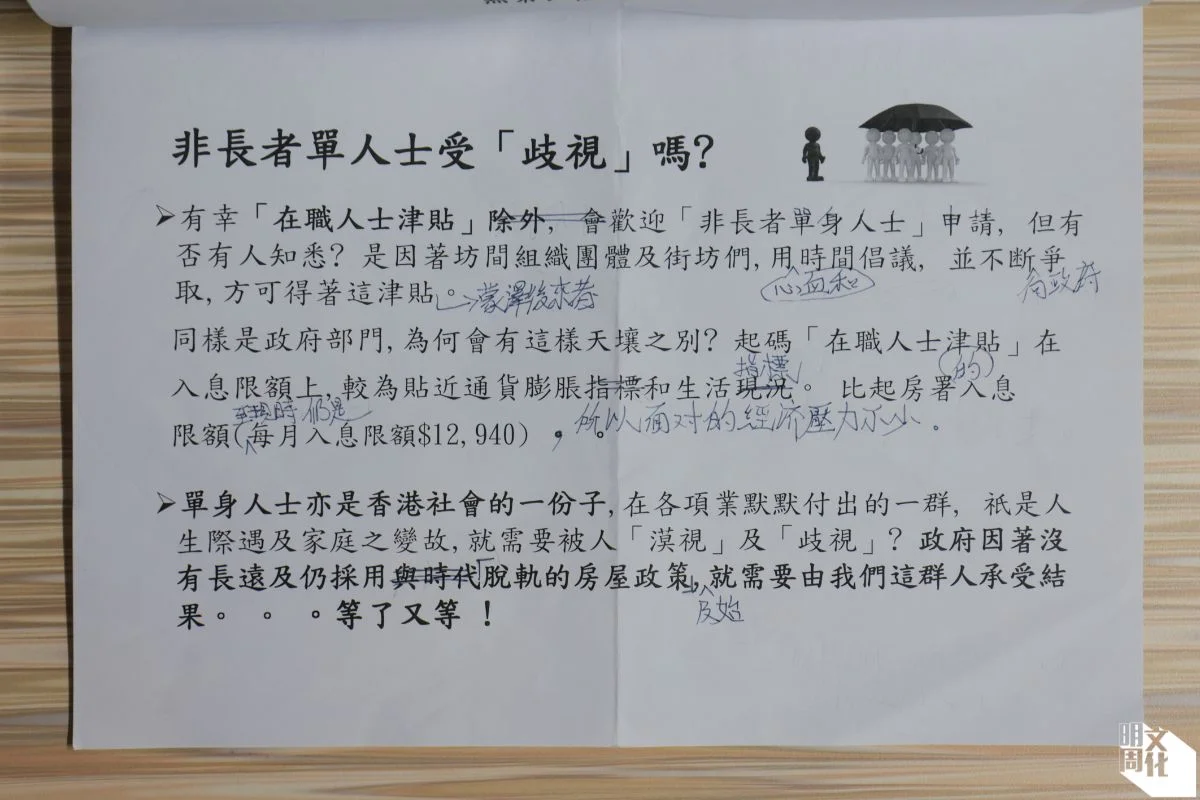 非長者單人士受「歧視」嗎?
➢有幸「在職人士津貼」除外，會歡迎「非長者單身人士」申請，但有
否有人知悉？是因著坊間組織團體及街坊們,用時間倡議，並不斷爭
心血和
向政府
取,方可得著這津貼。
蒙澤後來者
同樣是政府部門,為何會有這樣天壤之別？起碼「在職人士津貼」在
指標
的
入息限額上,較為貼近通貨膨脹指標和生活現況。 比起房署入息
現時仍是
所以面对的經济壓力不少。
限額(每月入息限額$12,940)，。
➢單身人士亦是香港社會的一份子,在各項業默默付出的一群，祇是人
生際遇及家庭之變故,就需要被人「漠視」及「歧視」？政府因著沒
有長遠及仍採用與時代脫軌的房屋政策,就需要由我們這群人承受結
果。 。 。等了又等！
明周文化